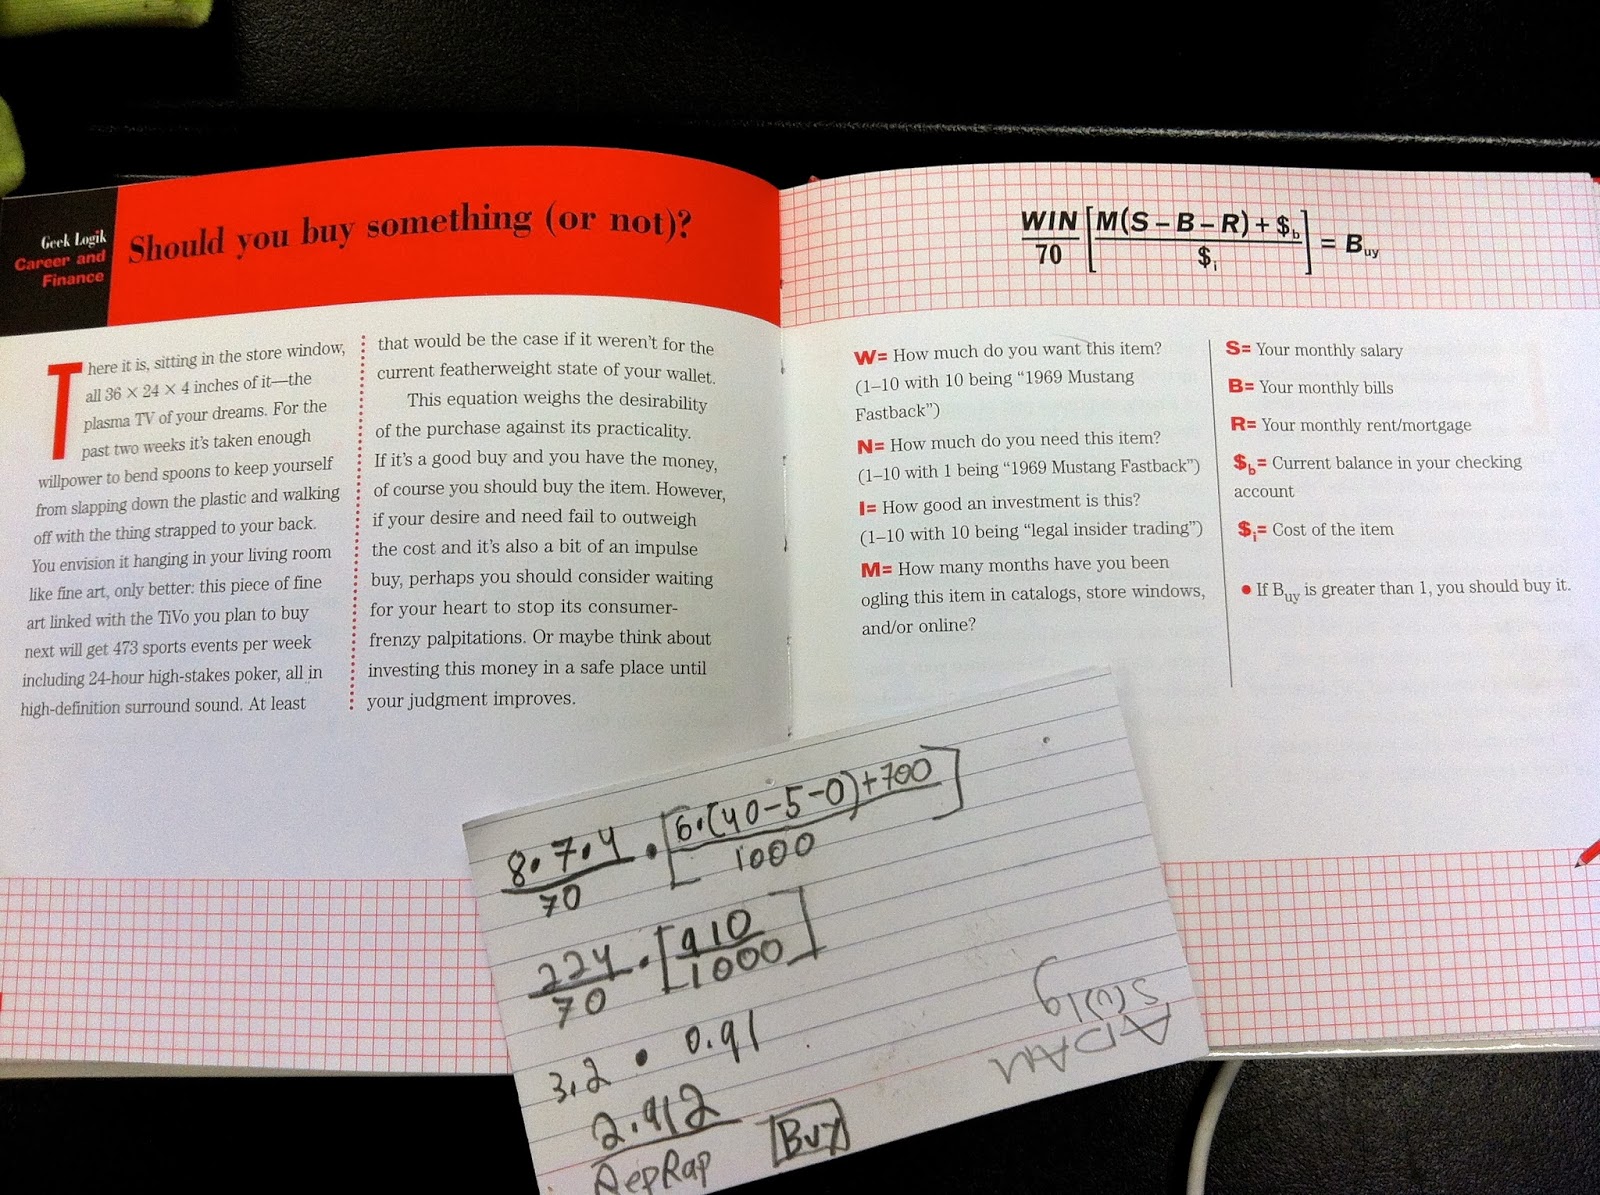 Geek Logik
Career and
Finance
Should you buy something (or not)?
There it is, sitting in the store window,
all 36 × 24 × 4 inches of it—the
plasma TV of your dreams. For the
past two weeks it's taken enough
willpower to bend spoons to keep yourself
from slapping down the plastic and walking
off with the thing strapped to your back.
You envision it hanging in your living room
like fine art, only better: this piece of fine
art linked with the TiVo you plan to buy
next will get 473 sports events per week
including 24-hour high-stakes poker, all in
high-definition surround sound. At least
that would be the case if it weren't for the
current featherweight state of your wallet.
This equation weighs the desirability
of the purchase against its practicality.
If it's a good buy and you have the money,
of course you should buy the item. However,
if your desire and need fail to outweigh
the cost and it's also a bit of an impulse
buy, perhaps you should consider waiting
for your heart to stop its consumer-
frenzy palpitations. Or maybe think about
investing this money in a safe place until
your judgment improves.
WIN/70 [M(S – B – R) + $b / $i] = Buy
W= How much do you want this item?
(1–10 with 10 being "1969 Mustang
Fastback")
N= How much do you need this item?
(1–10 with 1 being "1969 Mustang Fastback")
I= How good an investment is this?
(1–10 with 10 being "legal insider trading")
M= How many months have you been
ogling this item in catalogs, store windows,
and/or online?
S= Your monthly salary
B= Your monthly bills
R= Your monthly rent/mortgage
$b= Current balance in your checking
account
$i= Cost of the item
• If Buy is greater than 1, you should buy it.
8·7·4/70 · [6·(40-5-0)+700 / 1000]
224/70 · [910/1000]
3.2 · 0.91
2.912
RepRap [Buy]
ADAM